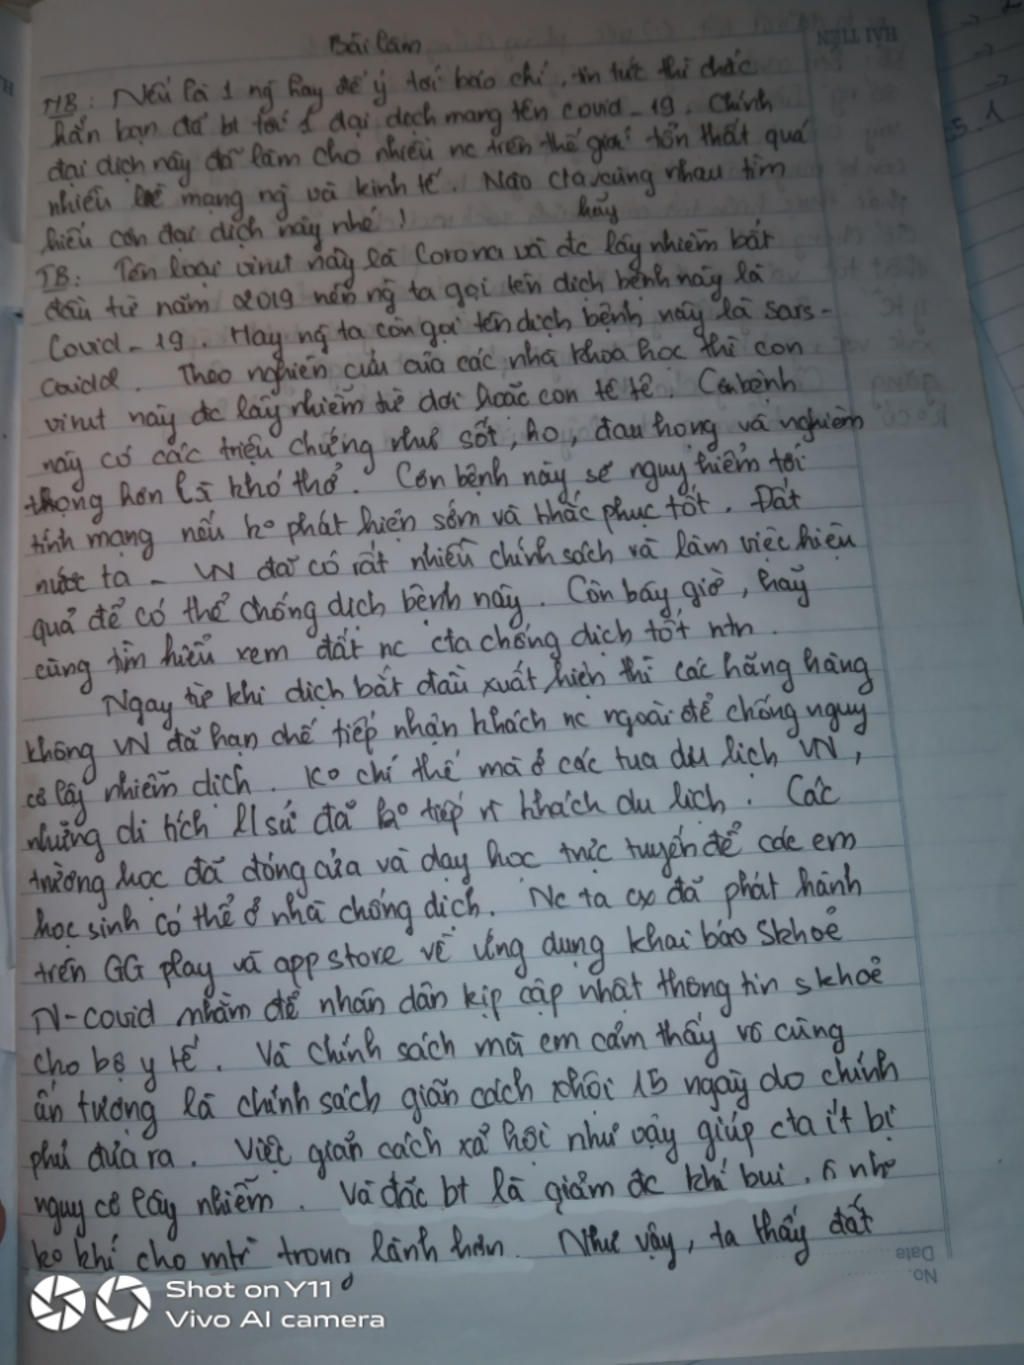 Bài làm
HẢI TIẾN
MB: Nếu là 1 ng hay để ý tới báo chí, tin tức thì chắc
hẳn bạn đã bt tới 1 đại dịch mang tên covid-19. Chính
đại dịch này đã làm cho nhiều nc trên thế giới tổn thất quá
nhiều về mạng ng và kinh tế. Nào cta, cùng nhau tìm
hãy
hiểu cơn đại dịch này nhé!
TB: Tên loại virut này là Corona và đc lây nhiễm bắt
đầu từ năm 2019 nên ng ta gọi tên dịch bệnh này là
Covid-19. Hay ng ta còn gọi tên dịch bệnh này là sars-
. Theo nghiên cứu của các nhà khoa học thì con
virut này đc lây nhiễm từ dơi hoặc con tê tê. Căn bệnh
này có các triệu chứng như sốt, ho, đau họng và nghiêm
trọng hơn là khó thở. Căn bệnh này sẽ nguy hiểm tới
tính mạng nếu ko phát hiện sớm và khắc phục tốt. Đất
nước ta - VN đã có rất nhiều chính sách và làm việc hiệu
quả để có thể chống dịch bệnh này. Còn bây giờ, hãy
cùng tìm hiểu xem đất nc cta chống dịch tốt ntn.
Ngay từ khi dịch bắt đầu xuất hiện thì các hãng hàng
không VN đã hạn chế tiếp nhận khách nc ngoài để chống nguy
cơ lây nhiễm dịch. Ko chỉ thế mà ở các tua du lịch VN,
những di tích lsử đã ko tiếp khách du lịch. Các
trường học đã đóng cửa và dạy học trực tuyến để các em
học sinh có thể ở nhà chống dịch. Nc ta cx đã phát hành
trên GG play và app store về ứng dụng khai báo skhoẻ
N-covid nhằm để nhân dân kịp cập nhật thông tin skhoẻ
cho bộ y tế. Và chính sách mà em cảm thấy vô cùng
ấn tượng là chính sách giãn cách xhội 15 ngày do chính
phủ đưa ra. Việc giãn cách xã hội như vậy giúp cta ít bị
nguy cơ lây nhiễm. Và đặc bt là giảm đc khí bụi, ô nh
ko khí cho mtr trong lành hơn. Như vậy, ta thấy đất
Date
No.
Shot on Y11
Vivo AI camera